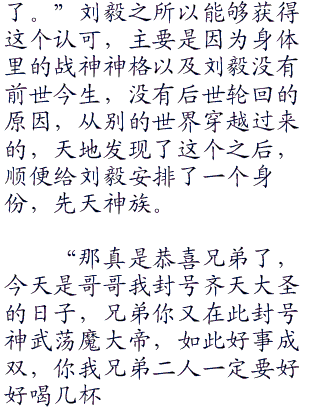 了。”刘毅之所以能够获得
这个认可，主要是因为身体
里的战神神格以及刘毅没有
前世今生，没有后世轮回的
原因，从别的世界穿越过来
的，天地发现了这个之后，
顺便给刘毅安排了一个身
份，先天神族。
“那真是恭喜兄弟了，
今天是哥哥我封号齐天大圣
的日子，兄弟你又在此封号
神武荡魔大帝，如此好事成
双，你我兄弟二人一定要好
好喝几杯